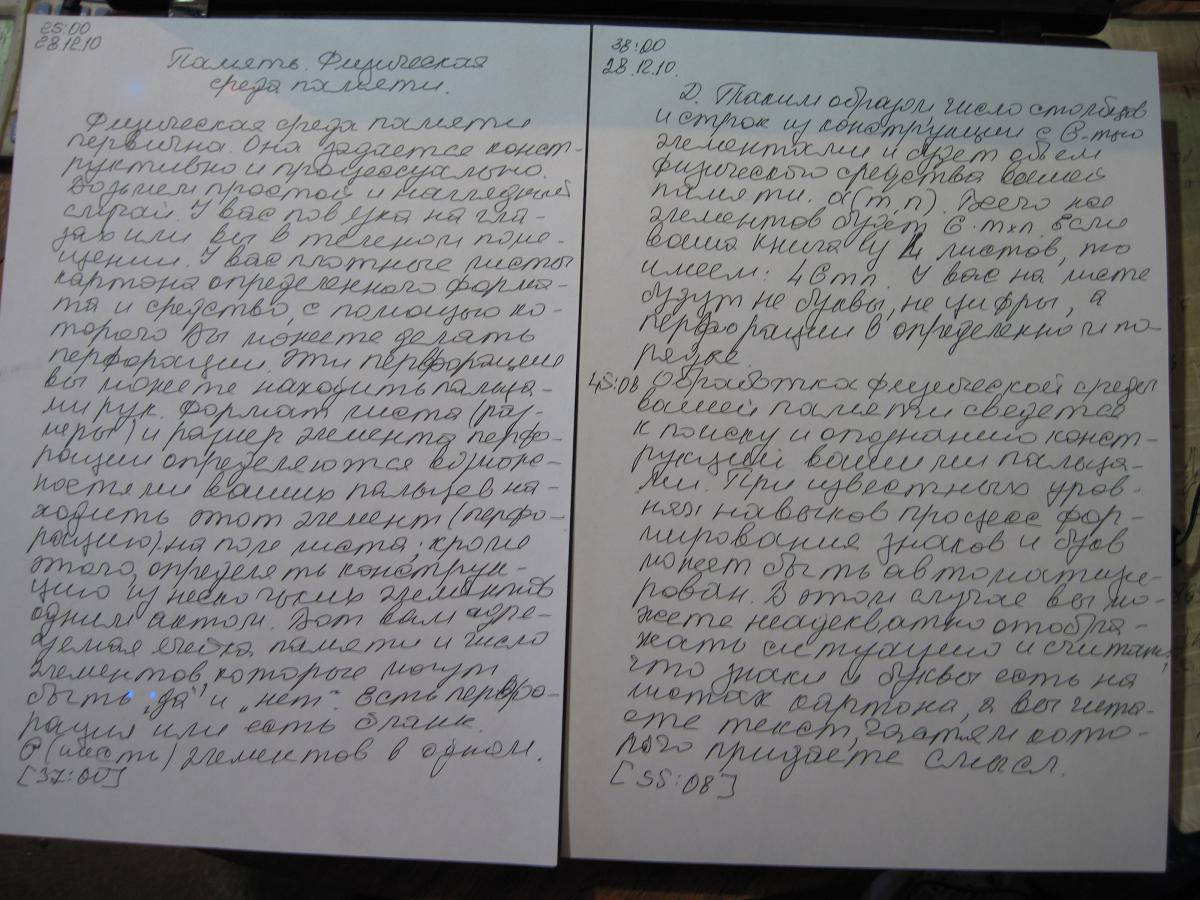 25:00
28.12.10
Память. Физическая
среда памяти.
Физическая среда памяти
первична. Она задается конст-
руктивно и процессуально.
Возьмем простой и наглядный
случай. У вас повязка на гла-
зах или вы в темном поме-
щении. У вас плотные листы
картона определенного форма-
та и средство, с помощью ко-
торого Вы можете делать
перфорации. Эти перфорации
вы можете находить пальца-
ми рук. Формат листа (раз-
меры) и размер элемента перфо-
рации определяются возмож-
ностями ваших пальцев на-
ходить этот элемент (перфо-
рацию) на поле листа; кроме
этого, определять конструк-
цию из нескольких элементов
одним актом. Вот вам адре-
уемая ячейка памяти и число
элементов, которые могут
быть „да" и „нет". Есть перфо-
рация или есть бланк.
6 (шесть) элементов в одном.
[37:00]
38:00
28.12.10.
2. Таким образом число столбцов
и строк из конструкции с 6-тью
элементами и будет объем
физического средства вашей
памяти. (m, n). Всего же
элементов будет 6·m×n. Если
ваша книга из 4 листов, то
имеем: 4 6 m n. У вас на листе
будут не буквы, не цифры, а
перфорации в определенном по-
рядке.
45:08 Обработка физической среды
вашей памяти сведется
к поиску и опознанию конст-
рукций вашими пальца-
ми. При известных уров-
нях навыков процесс фор-
мирования знаков и букв
может быть автоматизи-
рован. В этом случае вы мо-
жете неадекватно отобра-
жать ситуацию и считать,
что знаки и буквы есть на
листах картона, а вы чита-
ете текст, затям кото-
рого придаете смысл.
[55:08]